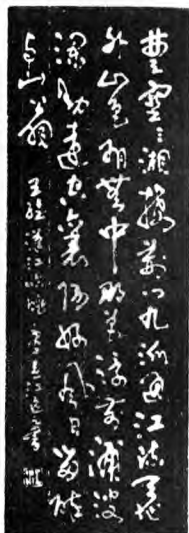 楚塞三湘接荊門九派通江流天地
外山色有無中郡邑浮前浦波
瀾動遠空襄陽好風日留醉
與山翁 王維漢江臨眺 書